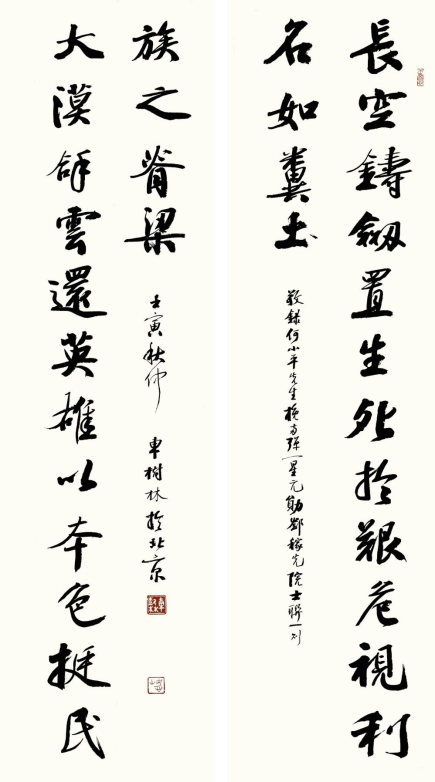 長空鑄劒置生死於艱危視利
名如糞土
敬録何小平先生挽両弹一星元勛鄧稼先院士聯一則
大漠舒雲還英雄以本色挺民
族之脊梁
壬寅秋仲 車樹林於北京